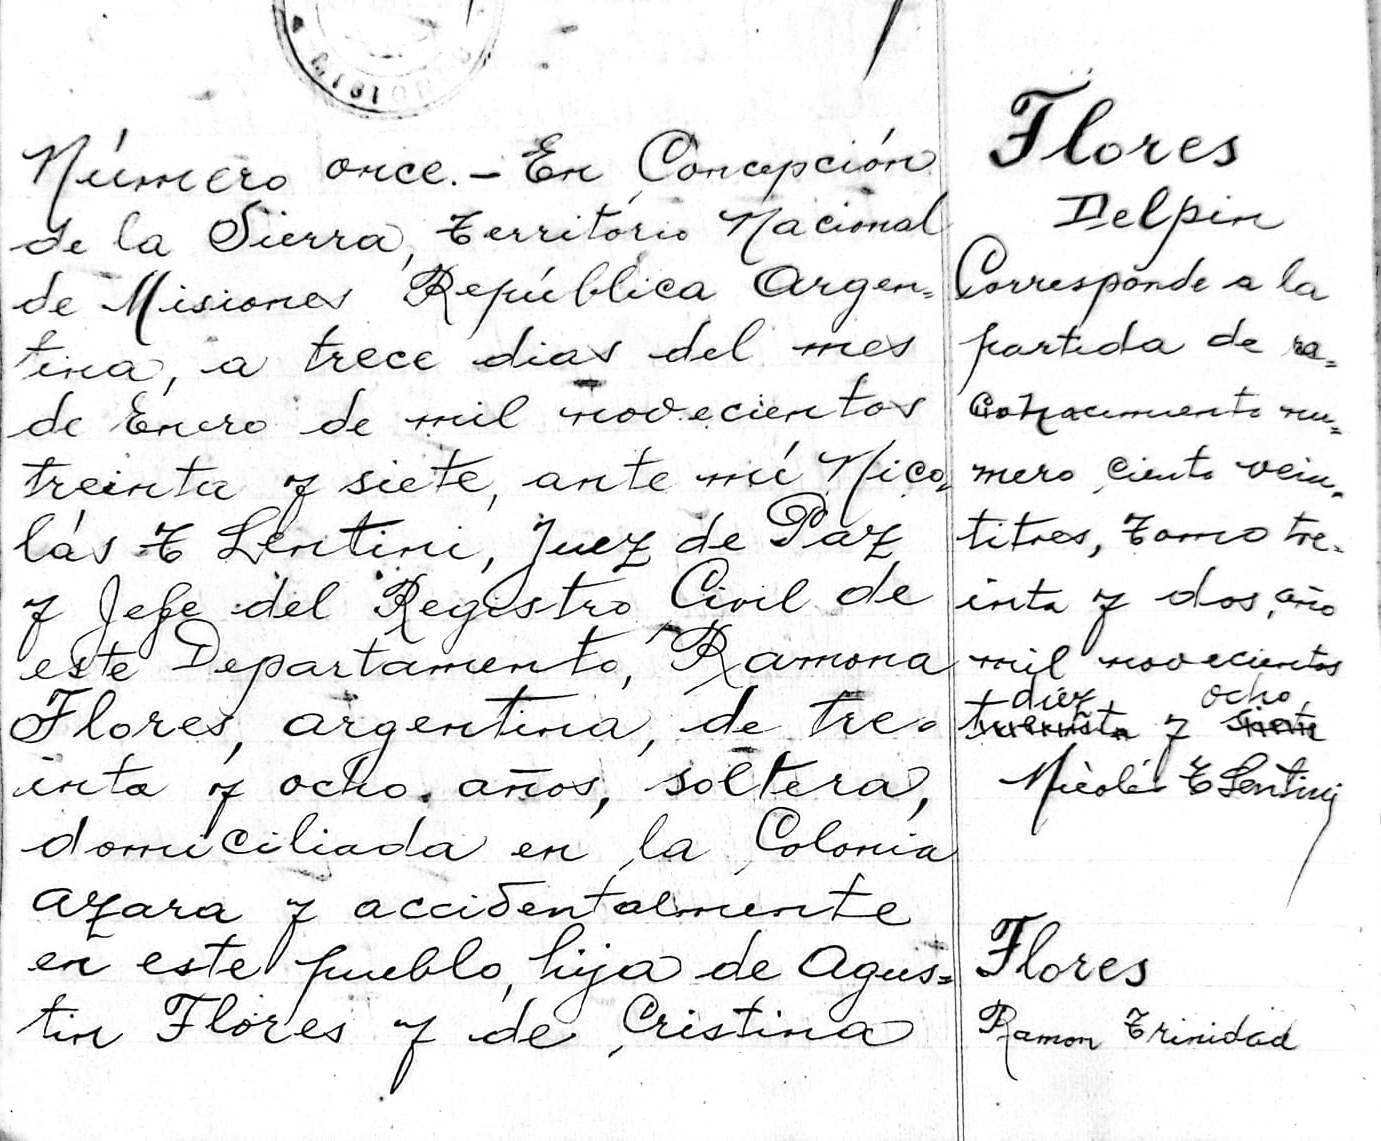 Número once.- En Concepción
de la Sierra, territorio Nacional
de Misiones República Argen=
tina, a trece dias del mes
de Enero de mil novecientos
treinta y siete, ante mí Nico=
lás E Lentini, Juez de Paz
y Jefe del Registro Civil de
este Departamento, Ramona
Flores, argentina, de tre=
inta y ocho años, soltera,
domiciliada en la Colonia
azara y accidentalmente
en este pueblo, hija de Agus=
tin Flores y de Cristina
Flores
Delpin
Corresponde a la
partida de
nu=
mero ciento vein=
titres, tomo tre=
inta y dos, año
mil novecientos
diez y ocho
Nicolás E Lentini
Flores
Ramon Trinidad